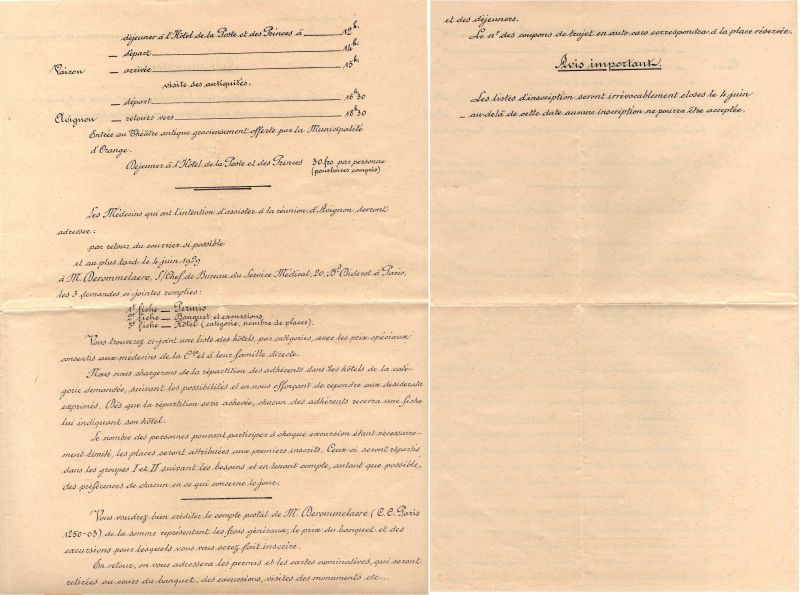 déjeuner à l'Hôtel de la Poste et des Princes à 12h.
— départ 14h.
Vaison — arrivée 15h.
visite des antiquités.
— départ 16h30
Avignon — retours vers 18h30
Entrée au Théâtre antique gracieusement offerte par la Municipalité
d'Orange.
Déjeuner à l'Hôtel de la Poste et des Princes 30 frs par personne
(pourboires compris)
Les Médecins qui ont l'intention d'assister à la réunion d'Avignon devront
adresser:
par retour du courrier si possible
et au plus tard le 4 juin 1929
à M. Derommelaere, S/Chef de Bureau du Service Médical, 20, Bd Diderot à Paris,
les 3 demandes ci-jointes remplies:
1e fiche — Permis
2e fiche — Banquet et excursions
3e fiche — Hôtel (catégorie, nombre de places).
Vous trouverez ci-joint une liste des hôtels, par catégories, avec les prix spéciaux
consentis aux médecins de la Cie et à leur famille directe.
Nous nous chargerons de la répartition des adhérents dans les hôtels de la caté-
gorie demandée, suivant les possibilités et en nous efforçant de répondre aux désiderata
exprimés. Dès que la répartition sera achevée, chacun des adhérents recevra une fiche
lui indiquant son hôtel.
Le nombre des personnes pouvant participer à chaque excursion étant nécessaire-
ment limité, les places seront attribuées aux premiers inscrits. Ceux-ci seront répartis
dans les groupes I et II suivant les besoins et en tenant compte, autant que possible,
des préférences de chacun en ce qui concerne le jour.
Vous voudrez bien créditer le compte postal de M. Derommelaere (C.C. Paris
1250-03) de la somme représentant les frais généraux, le prix du banquet et des
excursions pour lesquels vous vous serez fait inscrire.
En retour, on vous adressera les permis et les cartes nominatives, qui seront
retirées au cours du banquet, des excursions, visites des monuments etc...
et des déjeuners.
Le n° des coupons de trajet en auto-cars correspondra à la place réservée.
Avis important.
Les listes d'inscription seront irrévocablement closes le 4 juin
— au-delà de cette date aucune inscription ne pourra être acceptée.